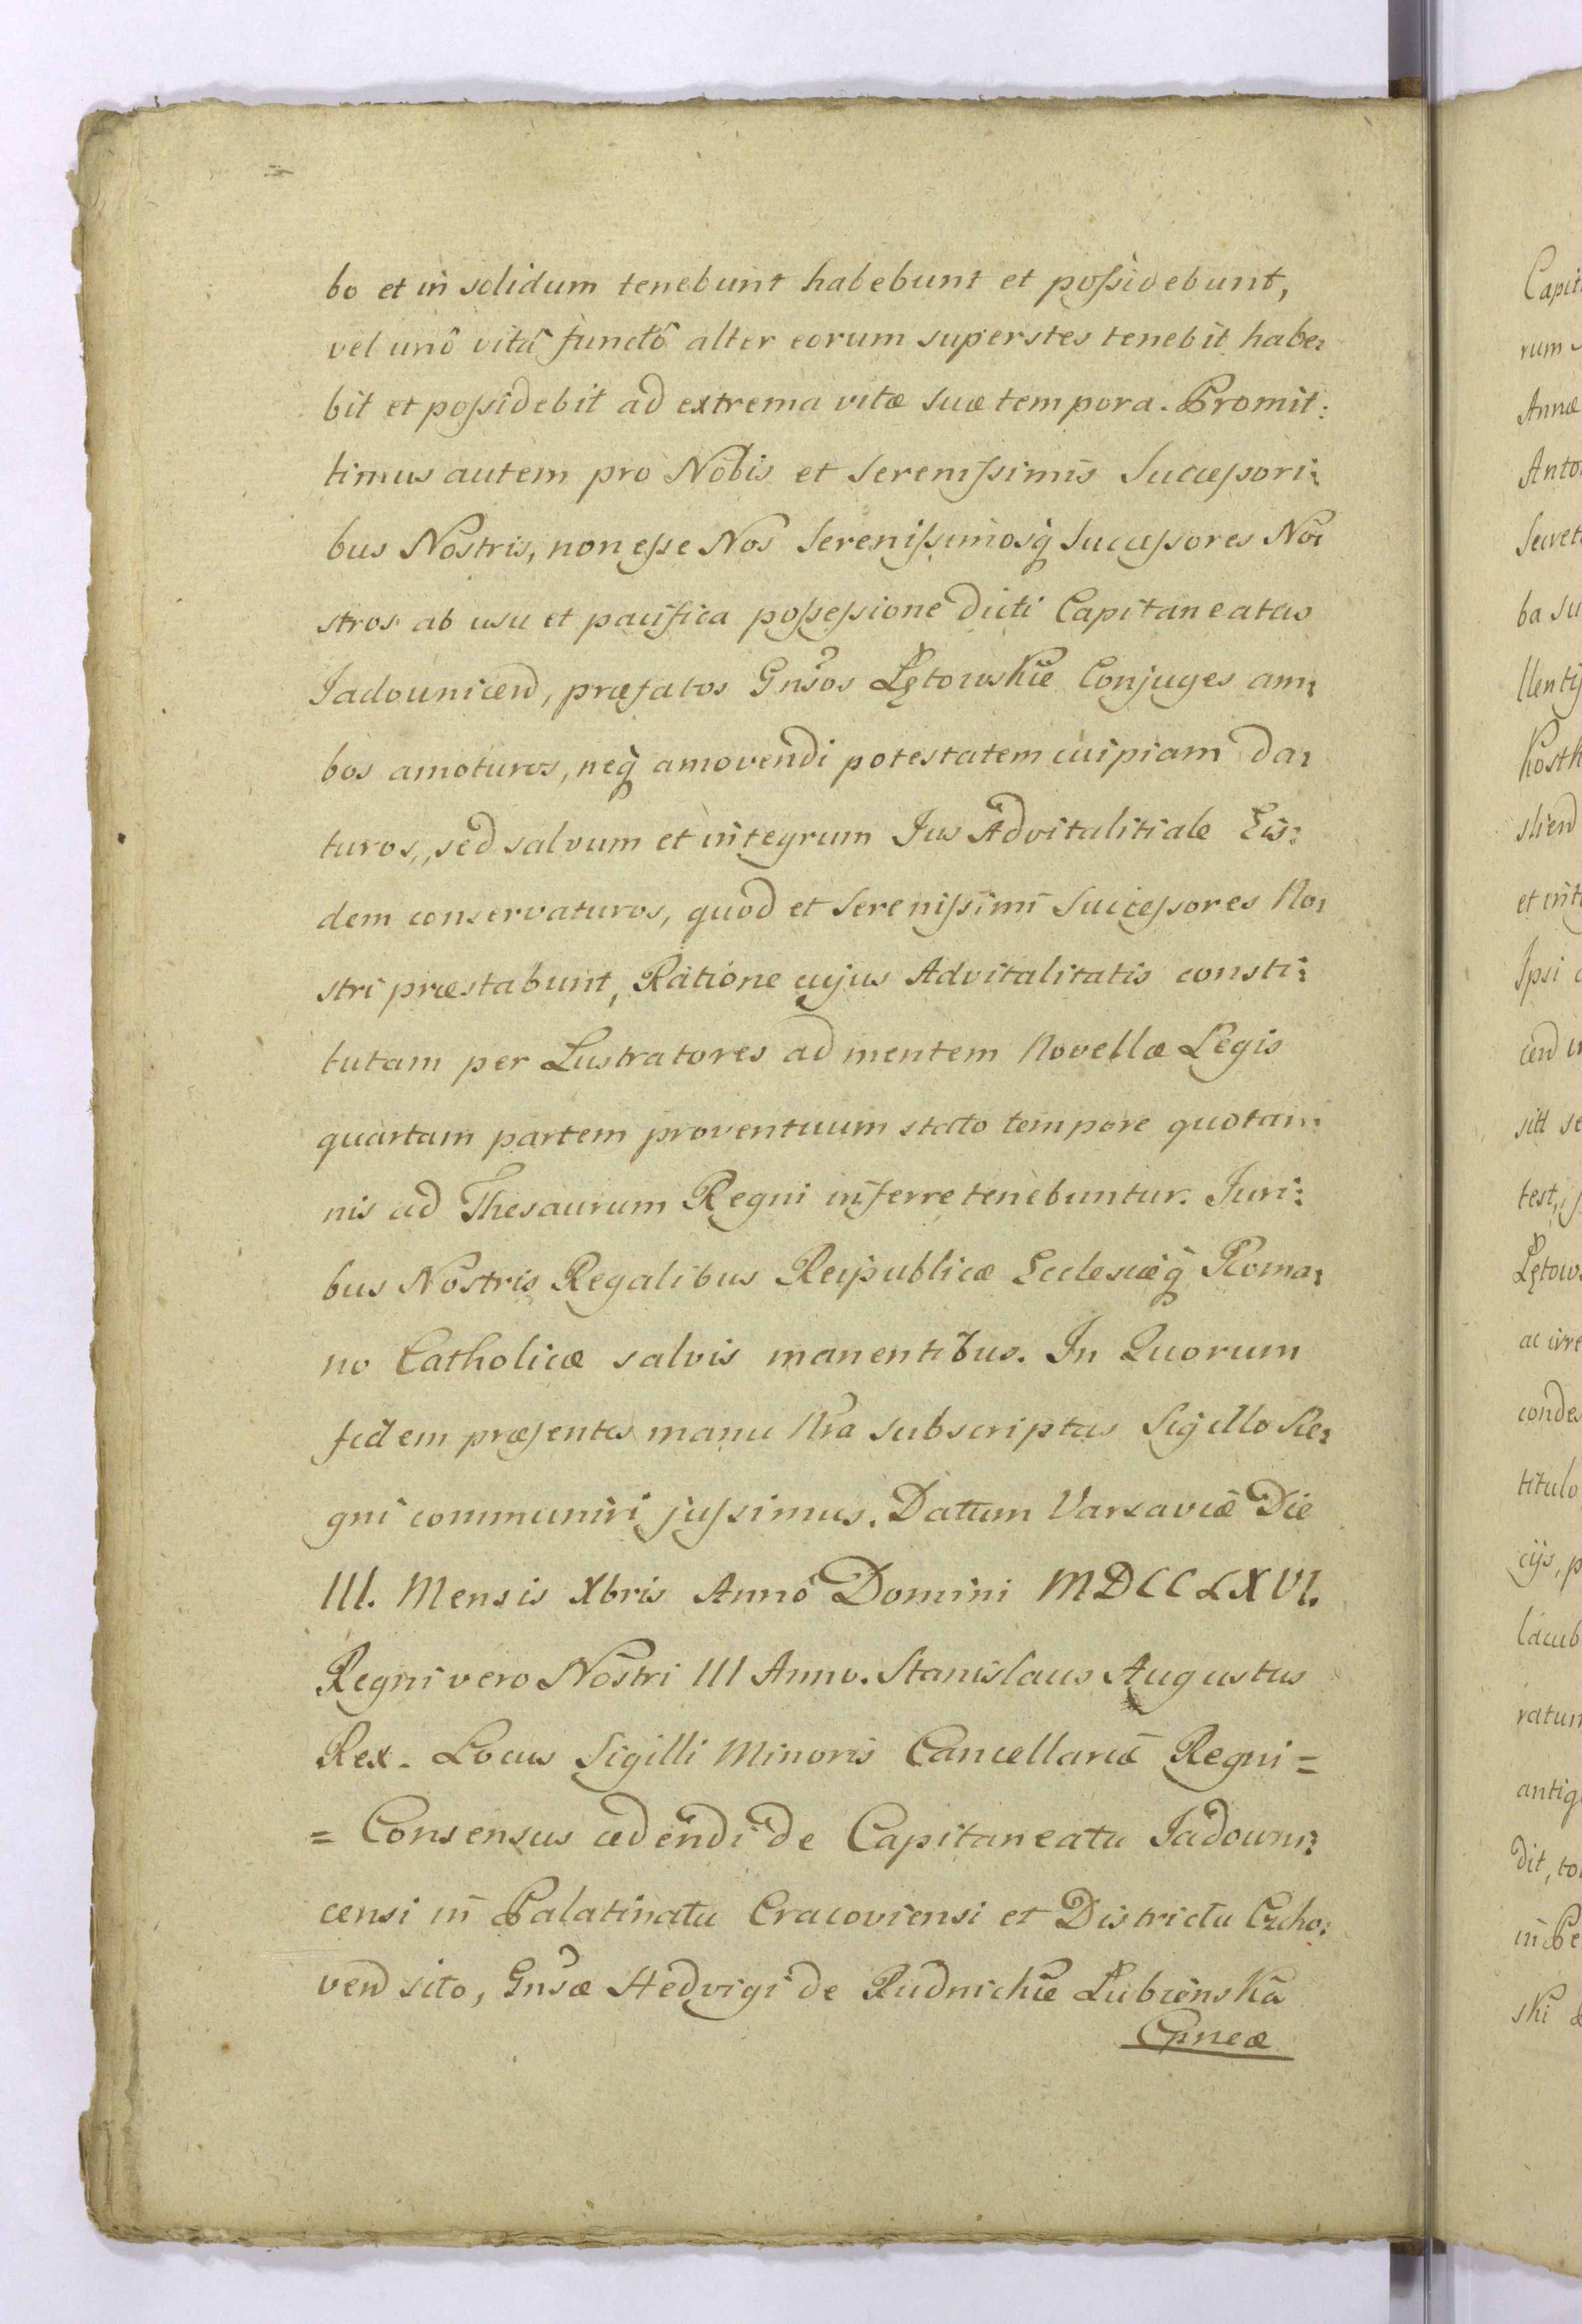 bo et in solidum tenebunt habebunt et poſsidebunt,
vel unô vitâ functô alter eorum superstes tenebit habe:
bit et poſsidebit ad extrema vitæ suæ tempora. Promit:
timus autem pro Nobis et Sereniſsimis Succeſsori:
bus Nostris, non eſse Nos Sereniſsimosq̃ Succeſsores No:
stros ab usu et pacifica poſseſsione dicti Capitaneatus
Jadounicen̄, præfatos Gn̄sos Łętowskie Conjuges am:
bos amoturos, neq̃ amovendi potestatem cuipiam da:
turos, sed salvum et integrum Jus Advitalitiale Eis:
dem conservaturos, quod et Sereniſsimi Succeſsores No:
stri præstabunt, Ratione cujus Advitalitatis consti:
tutam per Lustratores ad mentem Novellæ Legis
quartam partem proventuum stato tempore quotan:
nis ad Thesaurum Regni inferre tenebuntur. Juri:
bus Nostris Regalibus Reipublicæ Ecclesiæq̃ Roma:
no Catholicæ salvis manentibus. In Quorum
fidem præsentes manu Nr̄a subscriptas Sigillo Re:
gni communiri juſsimus. Datum Varsaviæ Die
III. Mensis Xbris Annô Domini MDCCLXVI.
Regni vero Nostri III Anno. Stanislaus Augustus
Rex. Locus Sigilli Minoris Cancellariæ Regni =
= Consensus cedendi de Capitaneatu Jadouni:
censi in Palatinatu Cracoviensi et Districtu Czcho:
ven̄ sito, Gn̄sæ Hedvigi de Rudnickie Łubieńska
Cṕneæ
Capit
rum
Annæ
Anto
Secret
ba su
llentij
Kosth
slien̄
et int
Ipsi
cen̄
sitt se
test,
Łętow
ac irre
condes
titulo
cijs, p
lacub
ratum
antiq
dit, to
in Pe
ski